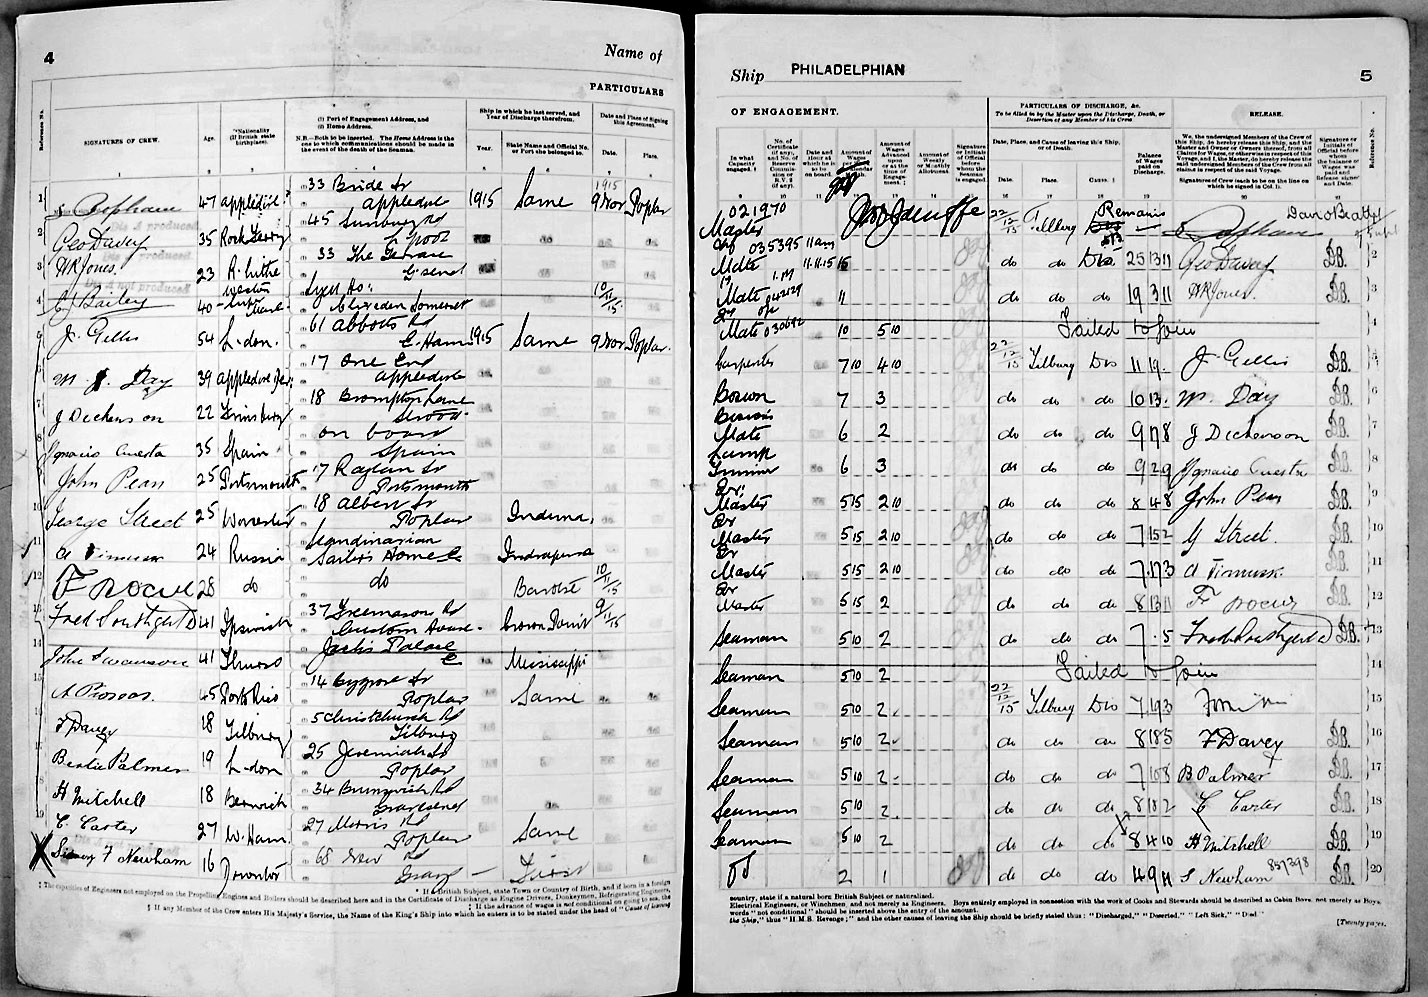 4
Name of
PARTICULARS
Reference No.
SIGNATURES OF CREW.
Age.
Nationality (If British state birthplace).
(1) Port of Engagement Address, and
(2) Home Address.
N.B.—Both to be inserted. The Home Address is the one to which communications should be made in the event of the death of the Seaman.
Ship in which he last served, and Year of Discharge therefrom.
Year.
State Name and Official No. or Port she belonged to.
Date and Place of Signing this Agreement.
Date.
Place.
1 47 appledore 33 Bride St appledore 1915 Same 1915 9 Nov Poplar
2 Geo Davey 35 45 Sunbury Rd L'pool
3 WR Jones 23 33 The Terrace G'send
4 C Bailey 40 Clevedon Somerset 10/11/15
5 J. Gellis 54 L-don. 61 Abbotts Rd E. Ham 1915 Same 9 Nov Poplar.
6 M. J. Day 39 appledore 17 One End appledore
7 J Dickenson 22 18 Brompton Lane Strood
8 Ignacio Cuesta 35 Spain on board Spain
9 John Pean 25 Portsmouth 17 Raglan St Portsmouth
10 George Street 25 Worcester 18 Albert St Poplar
11 24 Russia Scandinavian Sailors Home Indrapura
12 28 do do 10/11/15
13 Fred Southgate 41 Ipswich 37 Freemason Rd Custom House Crown Point 9/11/15
14 John Swanson 41 Jacks Palace E Mississippi
15 45 Porto Rico 14 Cygnet St Poplar Same
16 F Davey 18 Tilbury 5 Christchurch Rd Tilbury
17 Bertie Palmer 19 L-don 25 Jeremiah St Poplar
18 H Mitchell 18 34 Brunswick Rd Gravesend
19 C. Carter 27 W. Ham 27 Morris Rd Poplar Same
X Sidney F Newham 16 68 New Rd Grays First
‡ The capacities of Engineers not employed on the Propelling Engines and Boilers should be described here and in the Certificate of Discharge as Engine Drivers, Donkeymen, Refrigerating Engineers,
* If a British Subject, state Town or Country of Birth, and if born in a foreign
‡ If the advance of wages is not conditional on going to sea, the
§ If any Member of the Crew enters His Majesty's Service, the Name of the King's Ship into which he enters is to be stated under the head of "Cause of leaving
Ship PHILADELPHIAN
5
OF ENGAGEMENT.
PARTICULARS OF DISCHARGE, &c.
To be filled in by the Master upon the Discharge, Death, or Desertion of any Member of his Crew.
RELEASE.
In what Capacity engaged.
No. of Certificate (if any), and No. of Reserve Commission or R.V. 2 (if any).
Date and Hour at which to be on board.
Amount of Wages per Calendar Month
Amount of Wages Advanced upon or at the time of Engagement.
Amount of Weekly or Monthly Allotment.
Signature or Initials of Official before whom the Seaman is engaged.
Date, Place, and Cause of leaving this Ship, or of Death.
Date.
Place.
Cause.
Balance of Wages paid on Discharge.
We, the undersigned Members of the Crew of this Ship, do hereby release this Ship, and the Master and Owner or Owners thereof, from all Claims for Wages or otherwise in respect of this Voyage, and I, the Master, do hereby release the undersigned Members of the Crew from all claims in respect of the said Voyage.
Signatures of Crew (each to be on the line on which he signed in Col. 1).
Signature or Initials of Official before whom the balance of Wages was Paid and Release signed and Date.
Reference No.
021970
Master 22/12/15 Tilbury Remains David Beatty
Mate 035395 11am 11.11.15 do do Dis. 25 13 11 Geo Davey DB. 2
Mate 042129 11 do do do 19 3 11 WR Jones. DB. 3
Mate 030692 10 5 10 Failed to join 4
Carpenter 7 10 4 10 22/12/15 Tilbury Dis 11 19. J Gellis DB. 5
Bosun 7 3 do do do 10 13. M. Day DB. 6
Bosun's Mate 6 2 do do do 9 17 8 J Dickenson DB. 7
Lamp Trimmer 6 3 do do do 9 2 9 Ignacio Cuesta DB. 8
Qr. Master 5 15 2 10 do do do 8 4 8 John Pean DB. 9
Qr Master 5 15 2 10 do do do 7 15 2 G Street. DB. 10
Qr Master 5 15 2 10 do do do 7 17 3 DB. 11
Qr Master 5 15 2 do do do 8 13 11 DB. 12
Seaman 5 10 2 do do do 7. 5 Fred Southgate DB. 13
Seaman 5 10 2 Failed to join 14
Seaman 5 10 2 22/12/15 Tilbury Dis 7 19 3 15
Seaman 5 10 2 do do do 8 18 5 F Davey DB. 16
Seaman 5 10 2 do do do 7 10 8 B Palmer DB. 17
Seaman 5 10 2 do do do 8 18 2 C Carter DB. 18
Seaman 5 10 2 do do do 8 4 10 H Mitchell DB. 19
OS 2 1 do do do 4 9 11 S Newham 857398 DB. 20
country, state if a natural born British Subject or naturalised.
Electrical Engineers, or Winchmen, and not merely as Engineers. Boys entirely employed in connection with the work of Cooks and Stewards should be described as Cabin Boys, not merely as Boys.
words "not conditional" should be inserted above the entry of the amount.
the Ship," thus "H.M.S. Revenge;" and the other causes of leaving the Ship should be briefly stated thus: "Discharged," "Deserted," "Left Sick," "Died."
[Twenty pages.